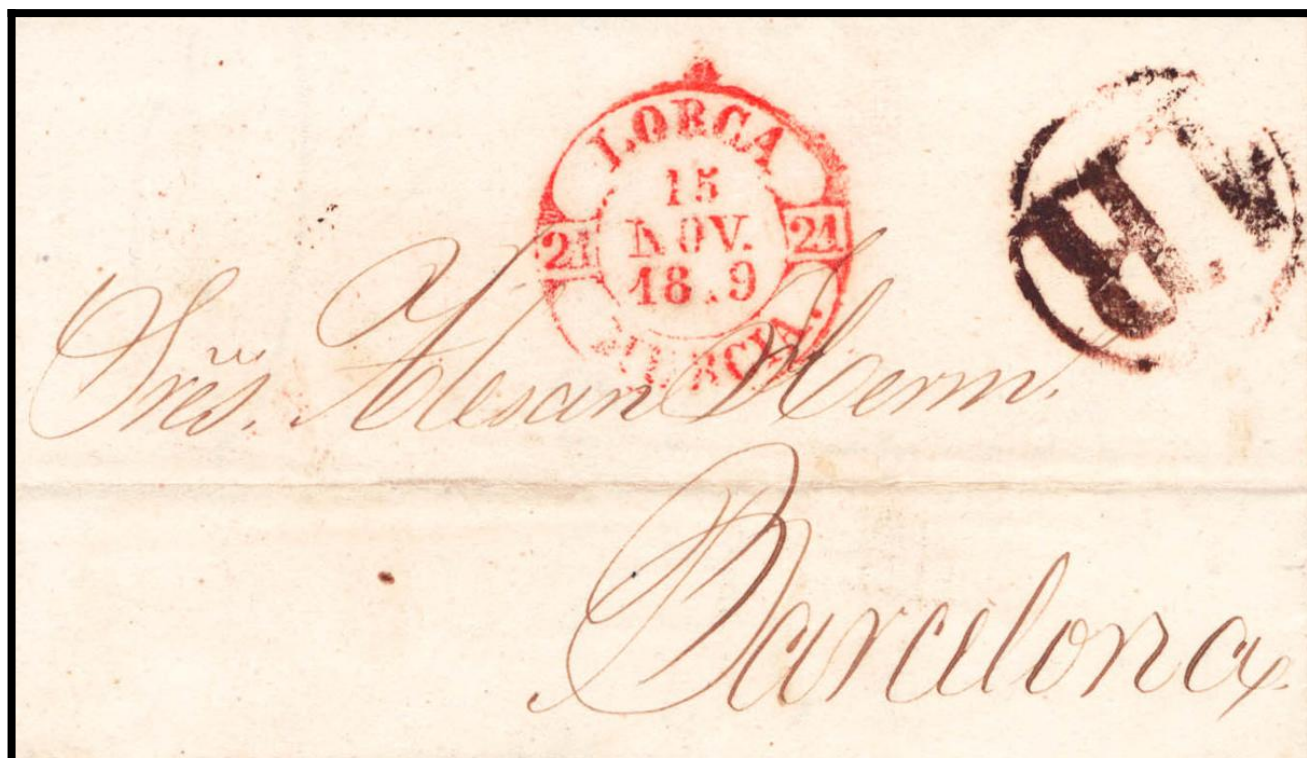 LORCA
15
NOV.
18.9
21 21
MURCIA.
R
Sres. Alesan Herm.
Barcelona